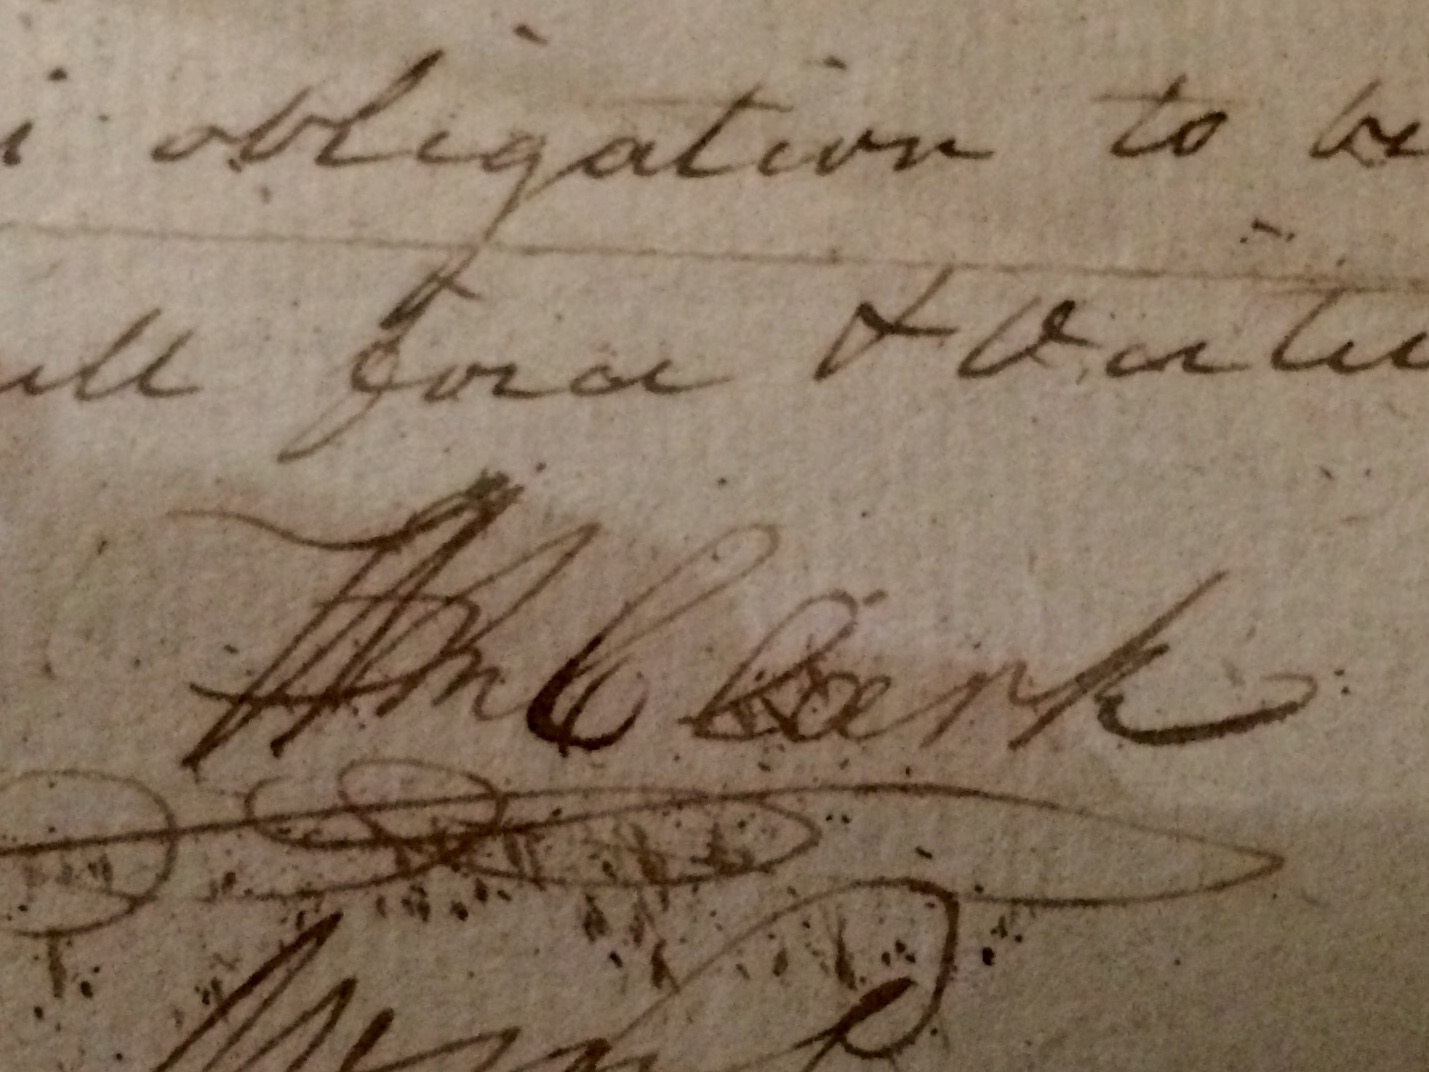 obligation to be
full force & Virtue
Wm Clark